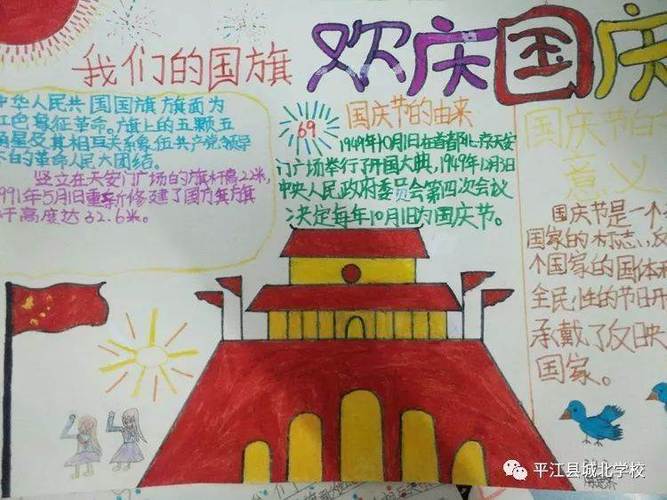 欢庆国庆
我们的国旗
中华人民共国国旗旗面为
红色象征革命。旗上的五颗五
角星及其相互关系象征共产党领导
下的革命人民大团结。
竖立在天安门广场的旗杆高22米,
1991年5月1日重新修建了国旗
杆高度达32.6米。
69
国庆节的由来
1949年10月1日在首都北京天安
门广场举行了开国大典,1949年12月3日
中央人民政府委员会第四次会议
决定每年10月1日为国庆节。
国庆节的
意义
国庆节是一个
国家的标志
个国家的国体
全民性的节日
承戴了反映
国家。
平江县城北学校